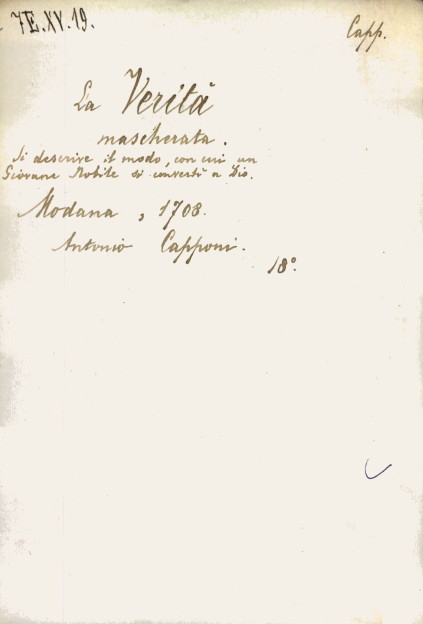 7E.XV.19.
Capp.
La Verità
mascherata.
Si descrive il modo, con cui un
Giovane Nobile si convertì a Dio.
Modana, 1708.
Antonio Capponi.
18°.